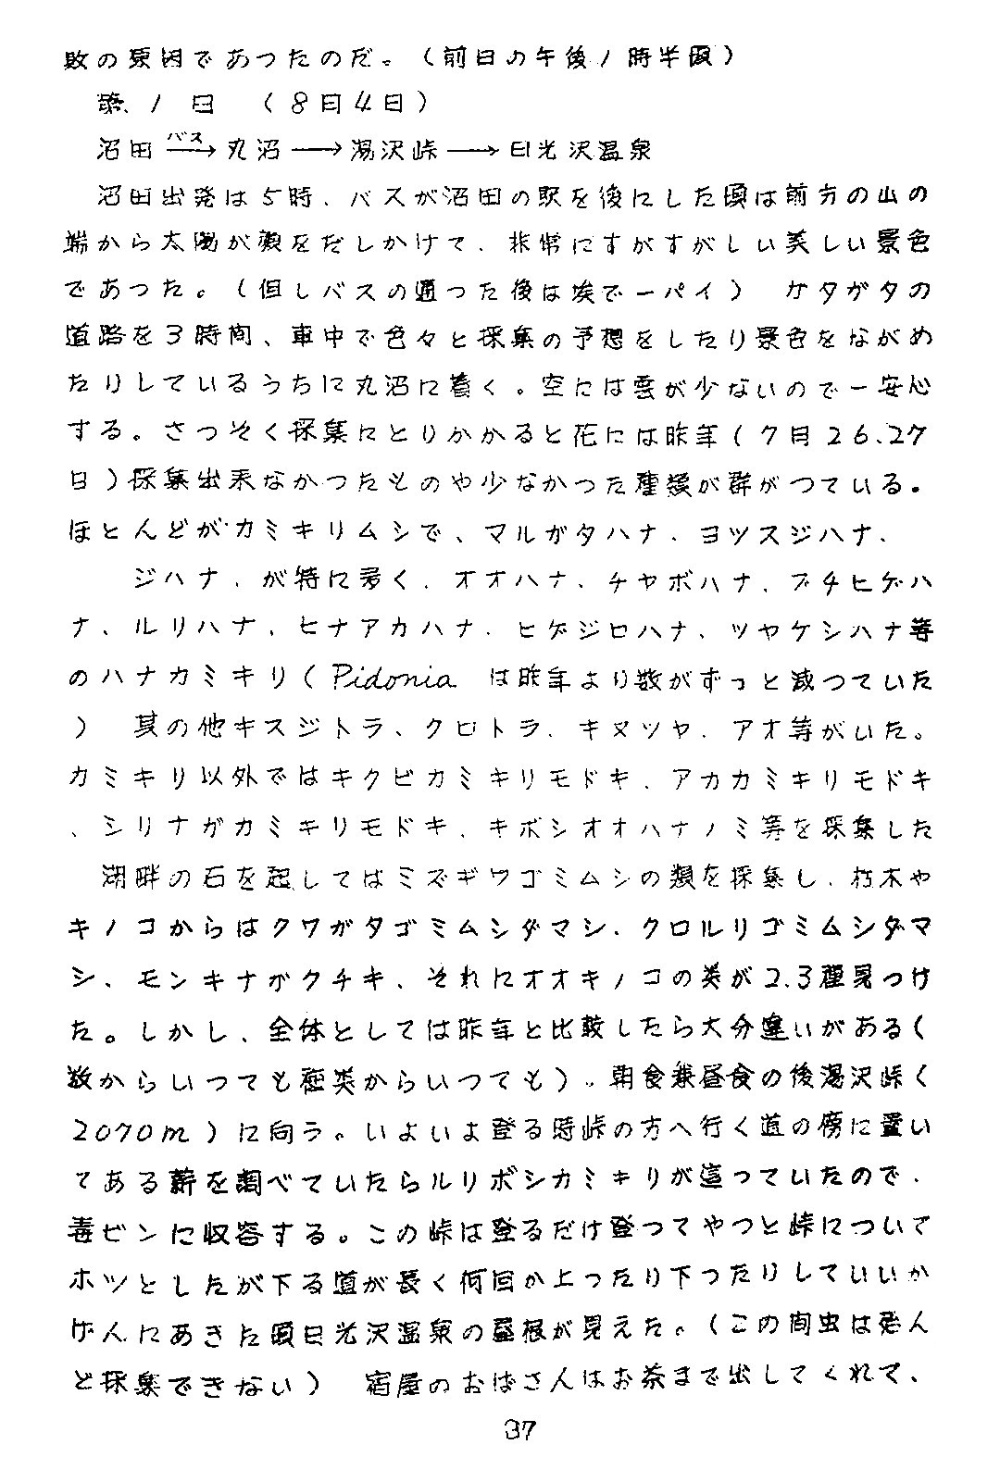 敗の原因であつたのだ。(前日の午後1時半頃)
第1日 (8月4日)
沼田 バス→ 丸沼 → 湯沢峠 → 日光沢温泉
沼田出発は5時、バスが沼田の駅を後にした頃は前方の山の
端から太陽が顔をだしかけて、非常にすがすがしい美しい景色
であつた。(但しバスの通つた後は埃で一パイ) ガタガタの
道路を3時間、車中で色々と採集の予想をしたり景色をながめ
たりしているうちに丸沼に着く。空には雲が少ないので一安心
する。さつそく採集にとりかかると花には昨年(7月26、27
日)採集出来なかつたものや少なかつた種類が群がつている。
ほとんどがカミキリムシで、マルガタハナ、ヨツスジハナ、
ジハナ、が特に多く、オオハナ、チヤボハナ、ブチヒゲハ
ナ、ルリハナ、ヒナアカハナ、ヒゲジロハナ、ツヤケシハナ等
のハナカミキリ(Pidonia は昨年より数がずっと減つていた
) 其の他キスジトラ、クロトラ、キヌツヤ、アオ等がいた。
カミキリ以外ではキクビカミキリモドキ、アカカミキリモドキ
、シリナガカミキリモドキ、キボシオオハナノミ等を採集した
湖畔の石を起してはミズギワゴミムシの類を採集し、朽木や
キノコからはクワガタゴミムシダマシ、クロルリゴミムシダマ
シ、モンキナガクチキ、それにオオキノコの類が2.3種見つけ
た。しかし、全体としては昨年と比較したら大分違いがある(
数からいつても種類からいつても)。朝食兼昼食の後湯沢峠(
2070m)に向う。いよいよ登る時峠の方へ行く道の傍に置い
てある薪を調べていたらルリボシカミキリが這つていたので、
毒ビンに収容する。この峠は登るだけ登つてやつと峠についで
ホツとしたが下る道が長く何回か上ったり下つたりしていいか
げんにあきた頃日光沢温泉の屋根が見えた。(この間虫は殆ん
ど採集できない) 宿屋のおばさんはお茶まで出してくれて、
37